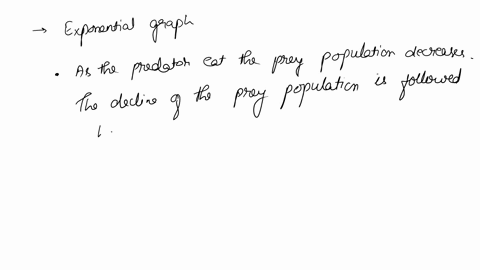 → Exponential graph
• As the predator eat the prey population decreases.
The decline of the prey population is followed